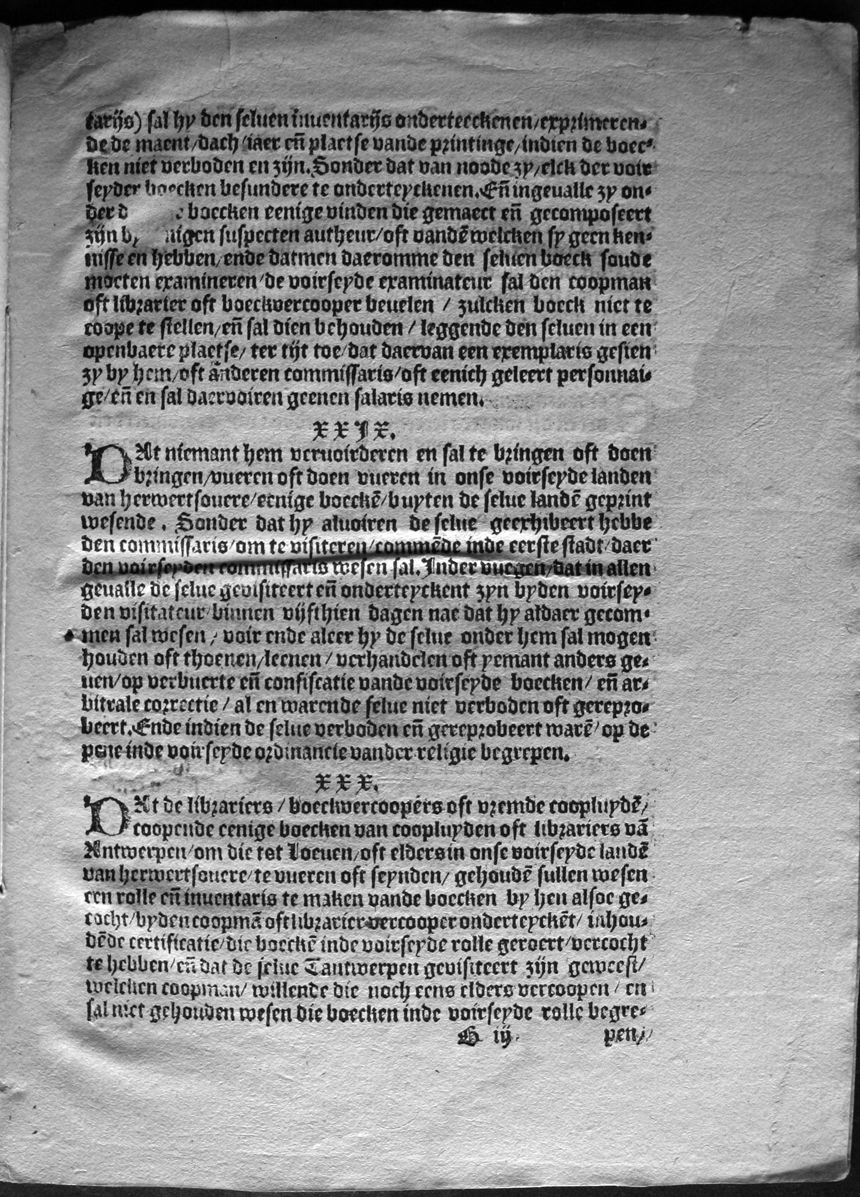 tarijs) sal hy den seluen inuentarijs onderteeckenen/exprimeren-
de de maent/dach/iaer eñ plaetse vande printinge/indien de boec-
ken niet verboden en zijn. Sonder dat van noode zy/elck der voir
seyder boecken besundere te onderteyckenen. Eñ ingevalle zy on-
der d e boecken eenige vinden die gemaect eñ gecomposeert
zijn by nigen suspecten autheur/oft vandē welcken sy geen ken-
nisse en hebben/ende datmen daeromme den seluen boeck soude
moeten examineren/de voirseyde examinateur sal den coopman
oft librarier oft boeckvercooper beuelen / zulcken boeck niet te
coope te stellen/eñ sal dien behouden / leggende den seluen in een
openbaere plaetse/ ter tijt toe/dat daervan een exemplaris gesien
zy by hem/oft anderen commissaris/oft eenich geleert personnai-
ge/eñ en sal daervoiren geenen salaris nemen.
XXIX.
DAt niemant hem vervoirderen en sal te bringen oft doen
bringen/vueren oft doen vueren in onse voirseyde landen
van herwertsouere/eenige boeckē/buyten de selue landē geprint
wesende. Sonder dat hy aluoiren de selue geexhibeert hebbe
den commissaris/om te visiteren/commēde inde eerste stadt/daer
den voirseyden commissaris wesen sal. Inder vuegen/dat in allen
gevalle de selue gevisiteert eñ onderteyckent zyn byden voirsey-
den visitateur binnen vijfthien dagen nae dat hy aldaer gecom-
men sal wesen / voir ende aleer hy de selue onder hem sal mogen
houden oft thoenen/leenen / verhandelen oft yemant anders ge-
uen/op verbuerte eñ confiscatie vande voirseyde boecken/ eñ ar-
bitrale correctie / al en warende selue niet verboden oft gerepro-
beert. Ende indien de selue verboden eñ gereprobeert warē/op de
pene inde voirseyde ordinancie vander religie begrepen.
XXX.
DAt de librariers / boeckvercoopers oft vremde coopluydē/
coopende eenige boecken van coopluyden oft librariers vā
Antwerpen/om die tot Loeuen/oft elders in onse voirseyde landē
van herwertsouere/te vueren oft seynden/ gehoudē sullen wesen
een rolle eñ inuentaris te maken vande boecken by hen alsoe ge-
cocht/byden coopmā oft librarier-vercooper onderteyckēt/ inhou-
dēde certificatie/die boeckē inde voirseyde rolle geroert/vercocht
te hebben/eñ dat de selue Tantwerpen gevisiteert zijn geweest/
welcken coopman/ willende die noch eens elders vercoopen / en
sal niet gehouden wesen die boecken inde voirseyde rolle begre-
G iij pen/